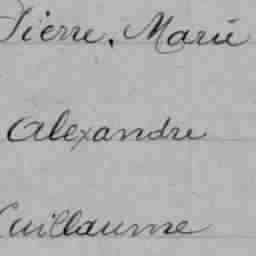 Pierre, Marie
Alexandre
Guillaume